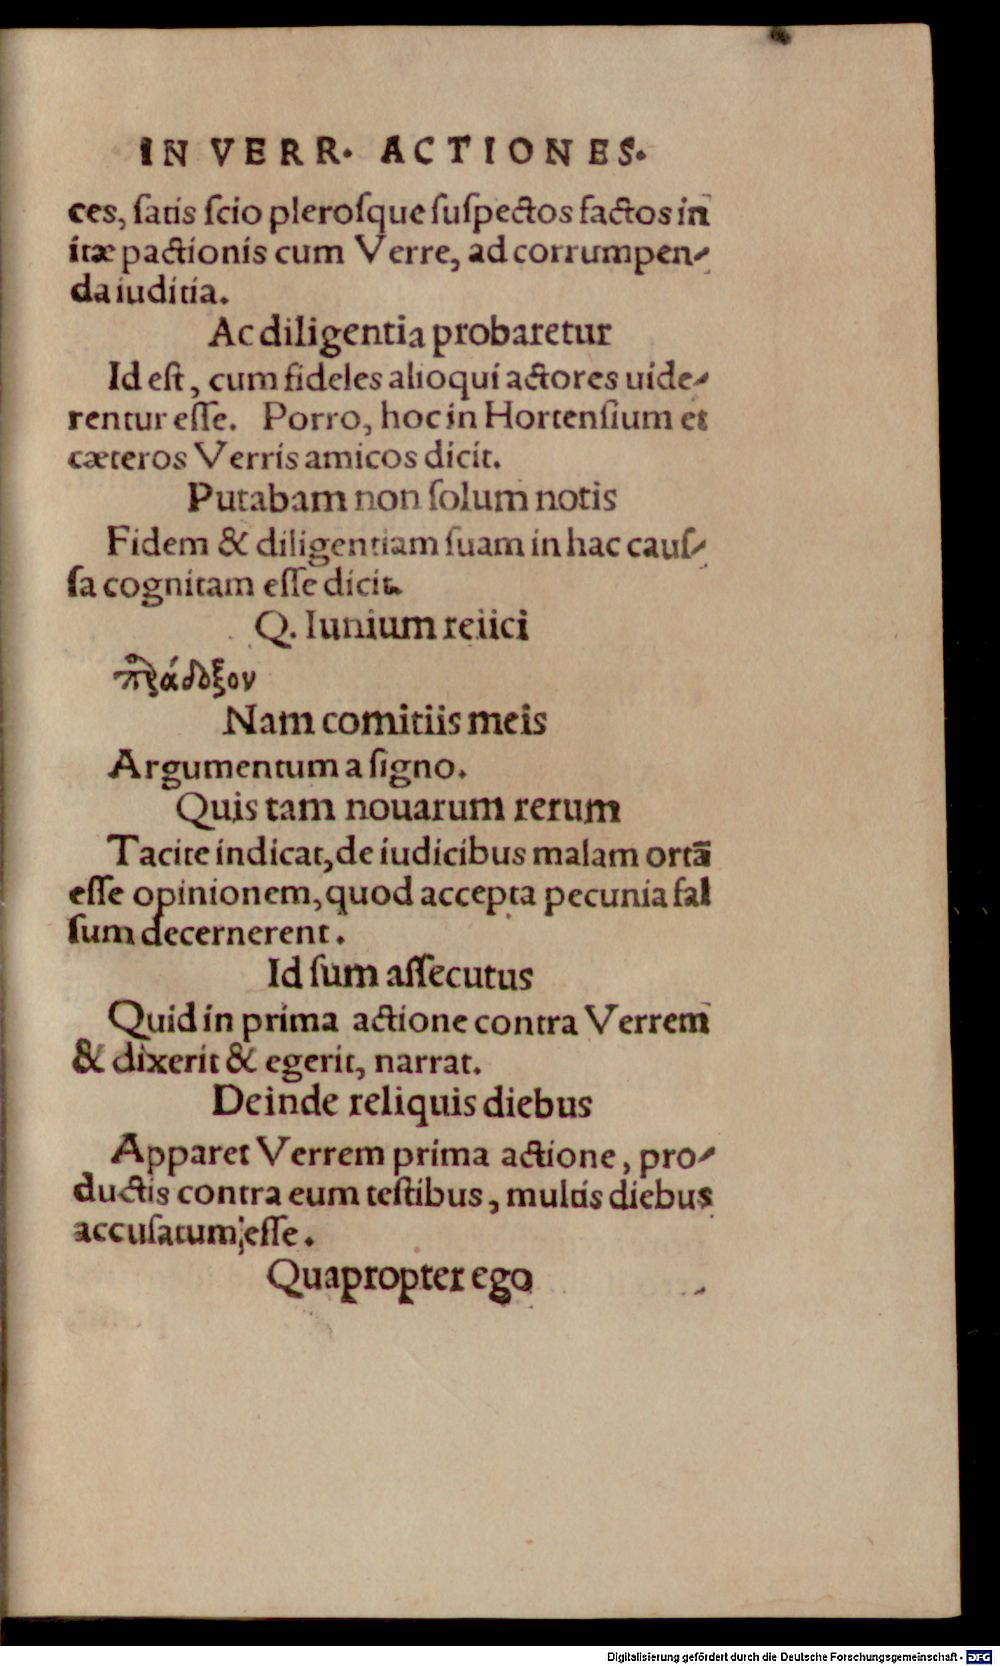 IN VERR. ACTIONES.
ces, ſatis ſcio pleroſque ſuſpectos factos in
itæ pactionis cum Verre, ad corrumpen-
da iuditia.
Ac diligentia probaretur
Id eſt, cum fideles alioqui actores uide-
rentur eſſe. Porro, hoc in Hortenſium et
cæteros Verris amicos dicit.
Putabam non ſolum notis
Fidem & diligentiam ſuam in hac cauſ-
ſa cognitam eſſe dicit.
Q. Iunium reiici
παράδοξον
Nam comitiis meis
Argumentum a ſigno.
Quis tam nouarum rerum
Tacite indicat, de iudicibus malam ortā
eſſe opinionem, quod accepta pecunia fal
ſum decernerent.
Id ſum aſſecutus
Quid in prima actione contra Verrem
& dixerit & egerit, narrat.
Deinde reliquis diebus
Apparet Verrem prima actione, pro-
ductis contra eum teſtibus, multis diebus
accuſatum eſſe.
Quapropter ego
Digitalisierung gefördert durch die Deutsche Forschungsgemeinschaft - DFG